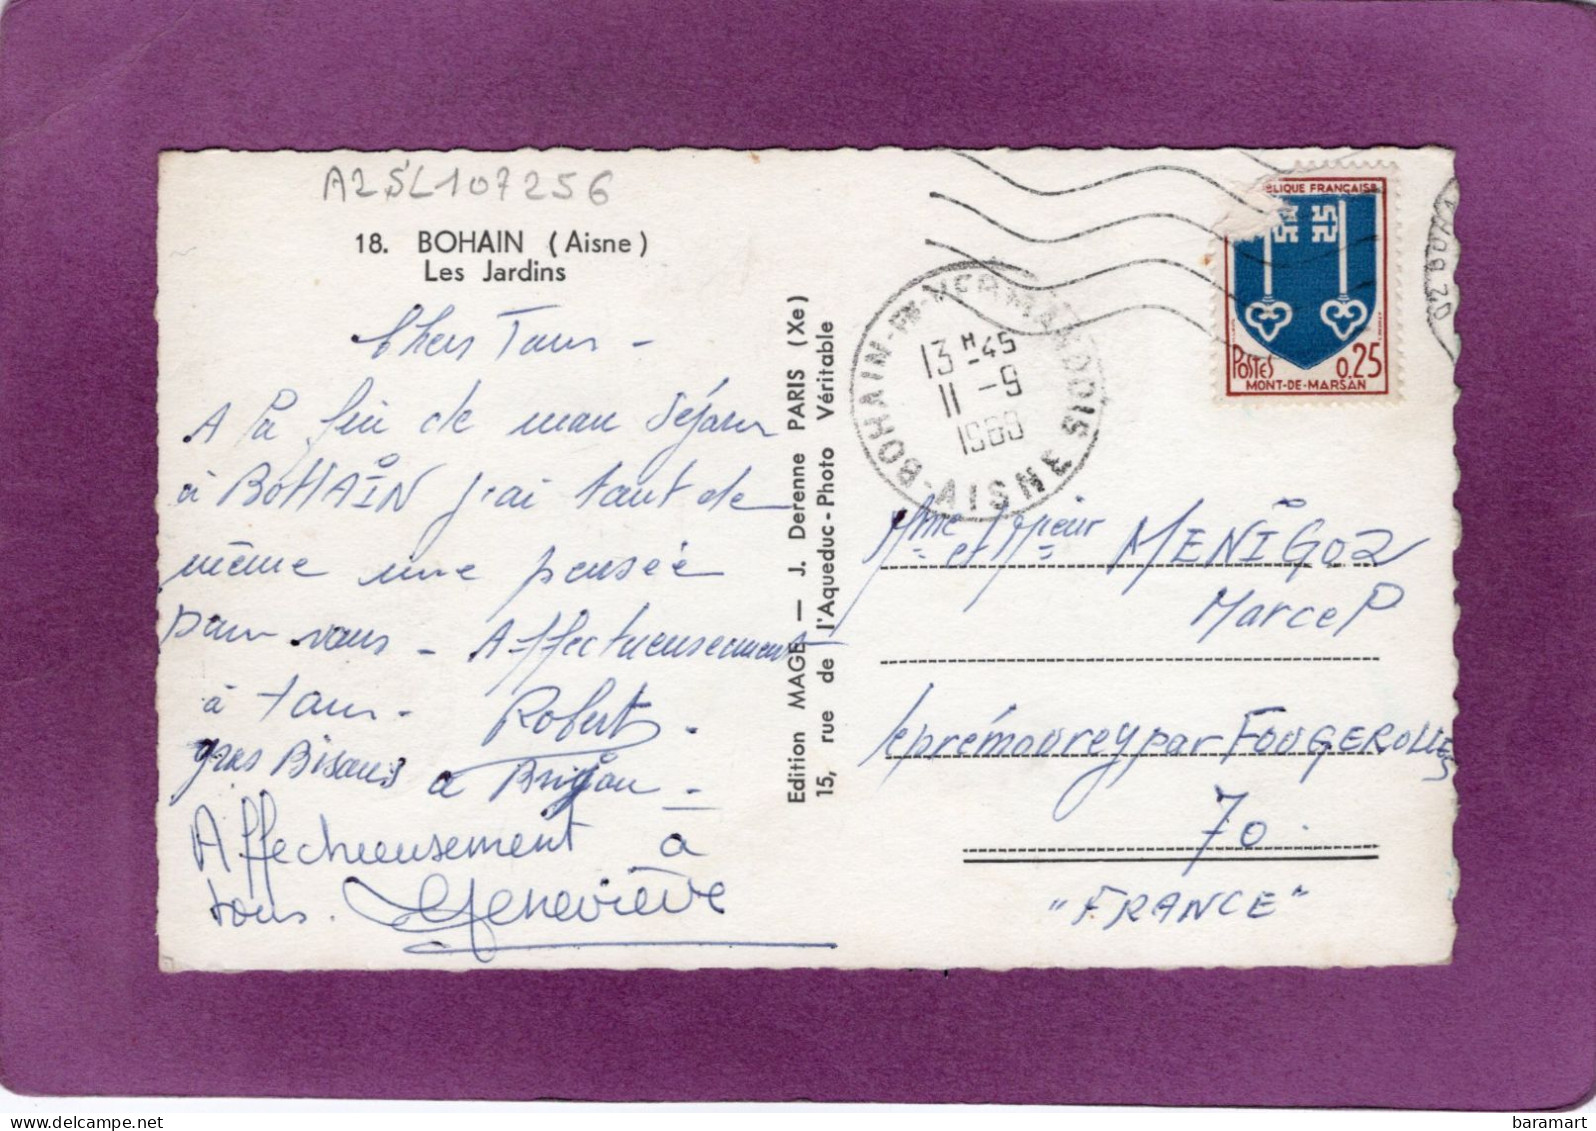 A25L107256
18. BOHAIN (Aisne)
Les Jardins
Chers Tous -
A la fin de mon séjour
à BOHAIN j'ai tout de
même une pensée
pour vous - Affectueusement
à tous - Robert -
gros Bisous a
Affectueusement à
tous. Geneviève
Edition MAGE — J. Derenne PARIS (Xe)
15, rue de l'Aqueduc - Photo Véritable
BOHAIN-EN-VERMANDOIS
13 H 45
11 - 9
1969
AISNE
BLIQUE FRANÇAISE
POSTES 0,25
MONT-DE-MARSAN
Mme et Mr MENIGOZ
Marcel
le prémourey par FOUGEROLLES
70.
"FRANCE"
baramart